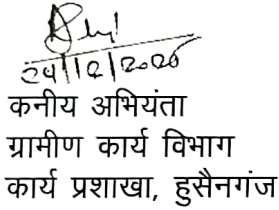 24/12/2020
कनीय अभियंता
ग्रामीण कार्य विभाग
कार्य प्रशाखा, हुसैनगंज